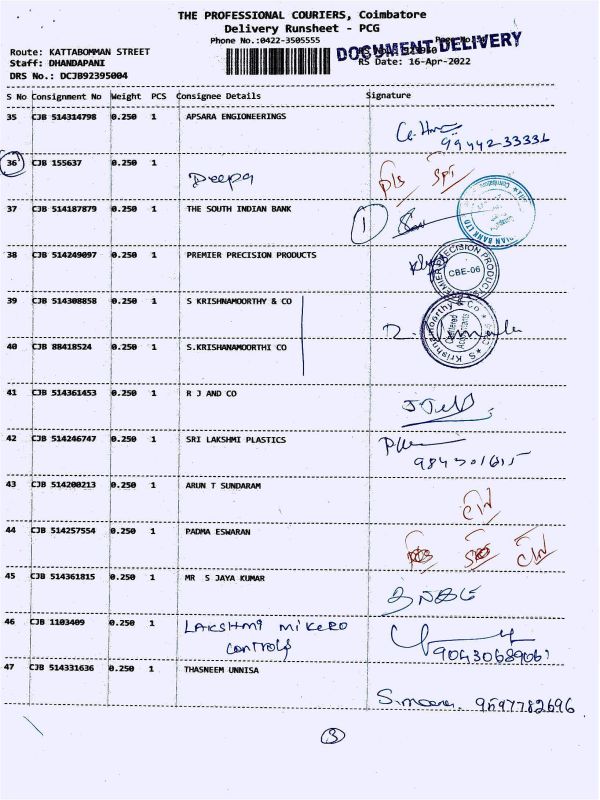 THE PROFESSIONAL COURIERS, Coimbatore
Delivery Runsheet - PCG
Phone No.:0422-3505555
DOCUMENT DELIVERY
Route: KATTABOMMAN STREET
Staff: DHANDAPANI
RS Date: 16-Apr-2022
DRS No.: DCJB92395004
S No Consignment No Weight PCS Consignee Details Signature
35 CJB 514314798 0.250 1 APSARA ENGIONEERINGS
99442-33331
36 CJB 155637 0.250 1
Deepa
37 CJB 514187879 0.250 1 THE SOUTH INDIAN BANK
1
38 CJB 514249097 0.250 1 PREMIER PRECISION PRODUCTS
PREMIER PRECISION PRODUCTS
CBE-06
39 CJB 514308858 0.250 1 S KRISHNAMOORTHY & CO
S Krishnamoorthy & Co
Chartered Accountants
40 CJB 88418524 0.250 1 S.KRISHANAMOORTHI CO
41 CJB 514361453 0.250 1 R J AND CO
42 CJB 514246747 0.250 1 SRI LAKSHMI PLASTICS
43 CJB 514200213 0.250 1 ARUN T SUNDARAM
44 CJB 514257554 0.250 1 PADMA ESWARAN
45 CJB 514361815 0.250 1 MR S JAYA KUMAR
46 CJB 1103409 0.250 1 LAKSHMI MIKERO
controls
90430689061
47 CJB 514331636 0.250 1 THASNEEM UNNISA
9597782696
3